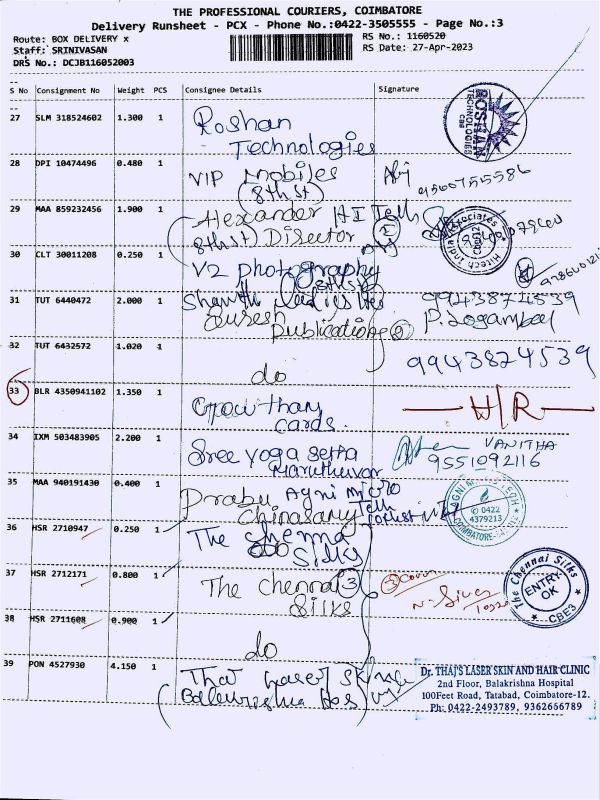 THE PROFESSIONAL COURIERS, COIMBATORE
Delivery Runsheet - PCX - Phone No.:0422-3505555 - Page No.:3
Route: BOX DELIVERY x
RS No.: 1160520
Staff: SRINIVASAN
RS Date: 27-Apr-2023
DRS No.: DCJB116052003
S No Consignment No Weight PCS Consignee Details Signature
27 SLM 318524602 1.300 1 Roshan
Technologies
ROSHAN TECHNOLOGIES CBE
28 DPI 10474496 0.480 1 VIP Mobiles
(8th st)
9500755586
29 MAA 859232456 1.900 1 Alexander HI Tech
(8th st) Director
Hitech India Associates
30 CLT 30011208 0.250 1 V2 photography
8th st
31 TUT 6440472 2.000 1 Shanthi
Suresh
Publications
9943874539
P. Logambal
32 TUT 6432572 1.020 1
do
9943824539
33 BLR 4350941102 1.350 1 Gowtham
cards
H/R
34 IXM 503483905 2.200 1 Sree yoga setha
Maruthuvar
VANITHA
9551092116
35 MAA 940191430 0.400 1 Prabu Agni micro
Chinasamy Tech
0422
4379213
COIMBATORE
36 HSR 2710947 0.250 1 The Chennai
Silks
37 HSR 2712171 0.800 1 The Chennai
Silks
3
3 Cover
The Chennai Silks
ENTRY
OK
CBE3
38 HSR 2711608 0.900 1
do
39 PON 4527930 4.150 1 Thai Laser Skin
Dr. THAJ'S LASER SKIN AND HAIR CLINIC
2nd Floor, Balakrishna Hospital
100Feet Road, Tatabad, Coimbatore-12.
Ph: 0422-2493789, 9362666789